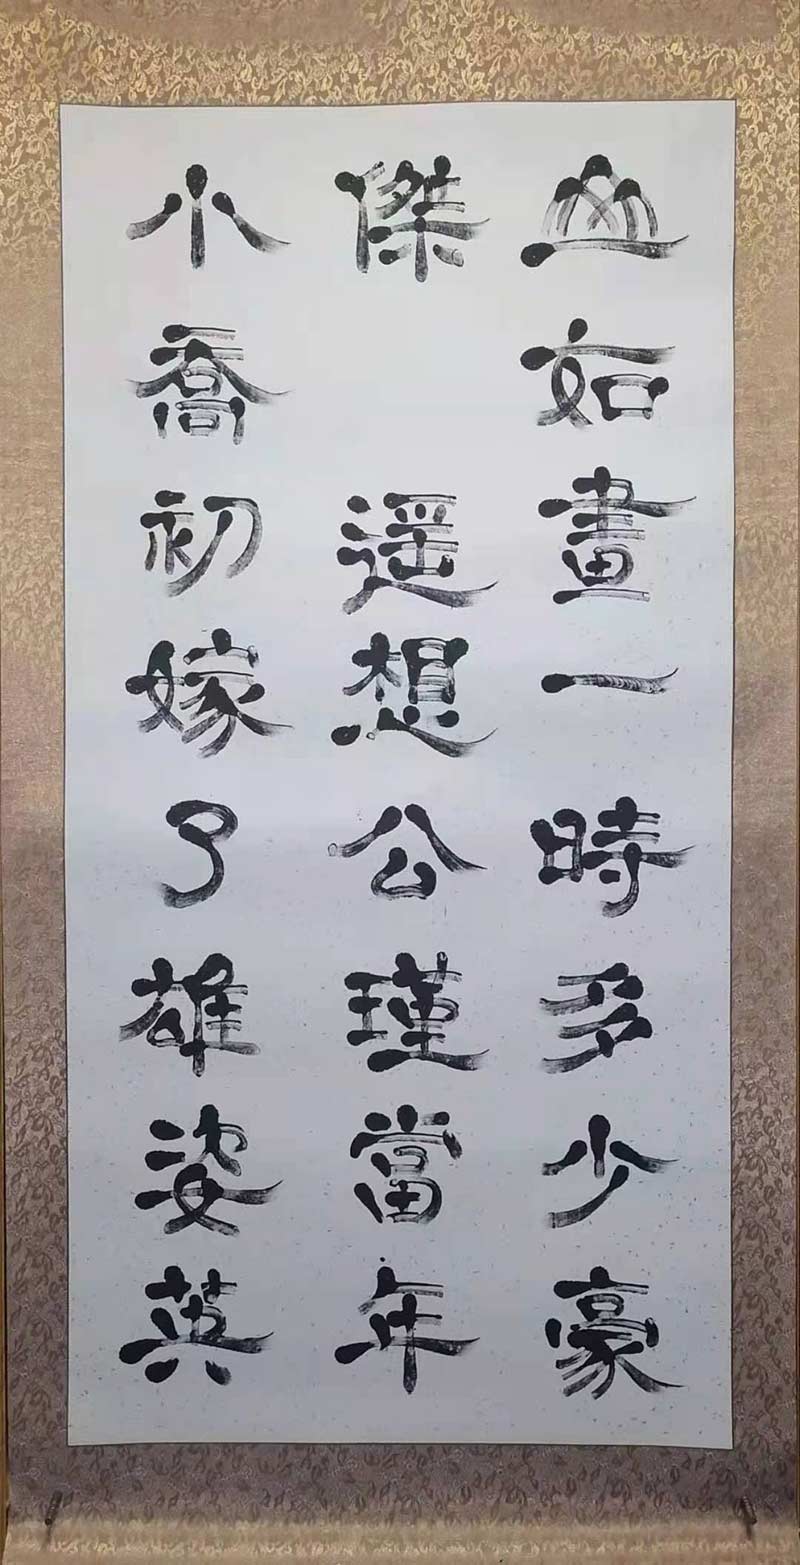 山如畫一時多少豪
傑 遥想公瑾當年
小喬初嫁了雄姿英